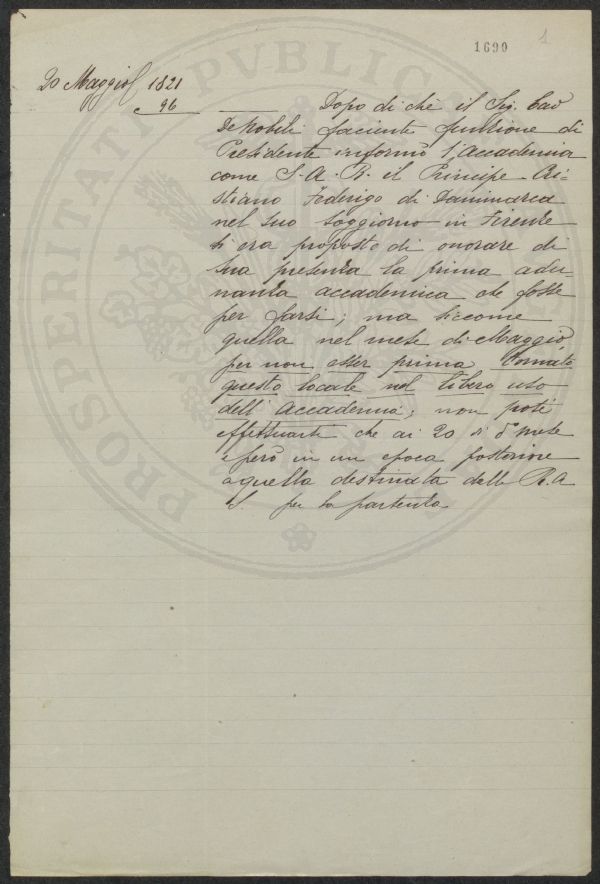 1690
1
20 Maggio 1821
c. 96
Dopo di che il Sig. Cav
De Nobili faciente funzione di
Presidente informò l'Accademia
come S. A. R. il Principe Cri=
stiano Federigo di Danimarca
nel suo soggiorno in Firenze
si era proposto di onorare di
sua presenza la prima adu
nanza accademica che fosse
per farsi; ma siccome
quella nel mese di Maggio
per non esser prima tornato
questo locale nel libero uso
dell'Accademia; non poté
effettuarsi che ai 20 di do mese
e però in un epoca posteriore
a quella destinata dalla R. A
S. per la partenza
PROSPERITATI PVBLICAE